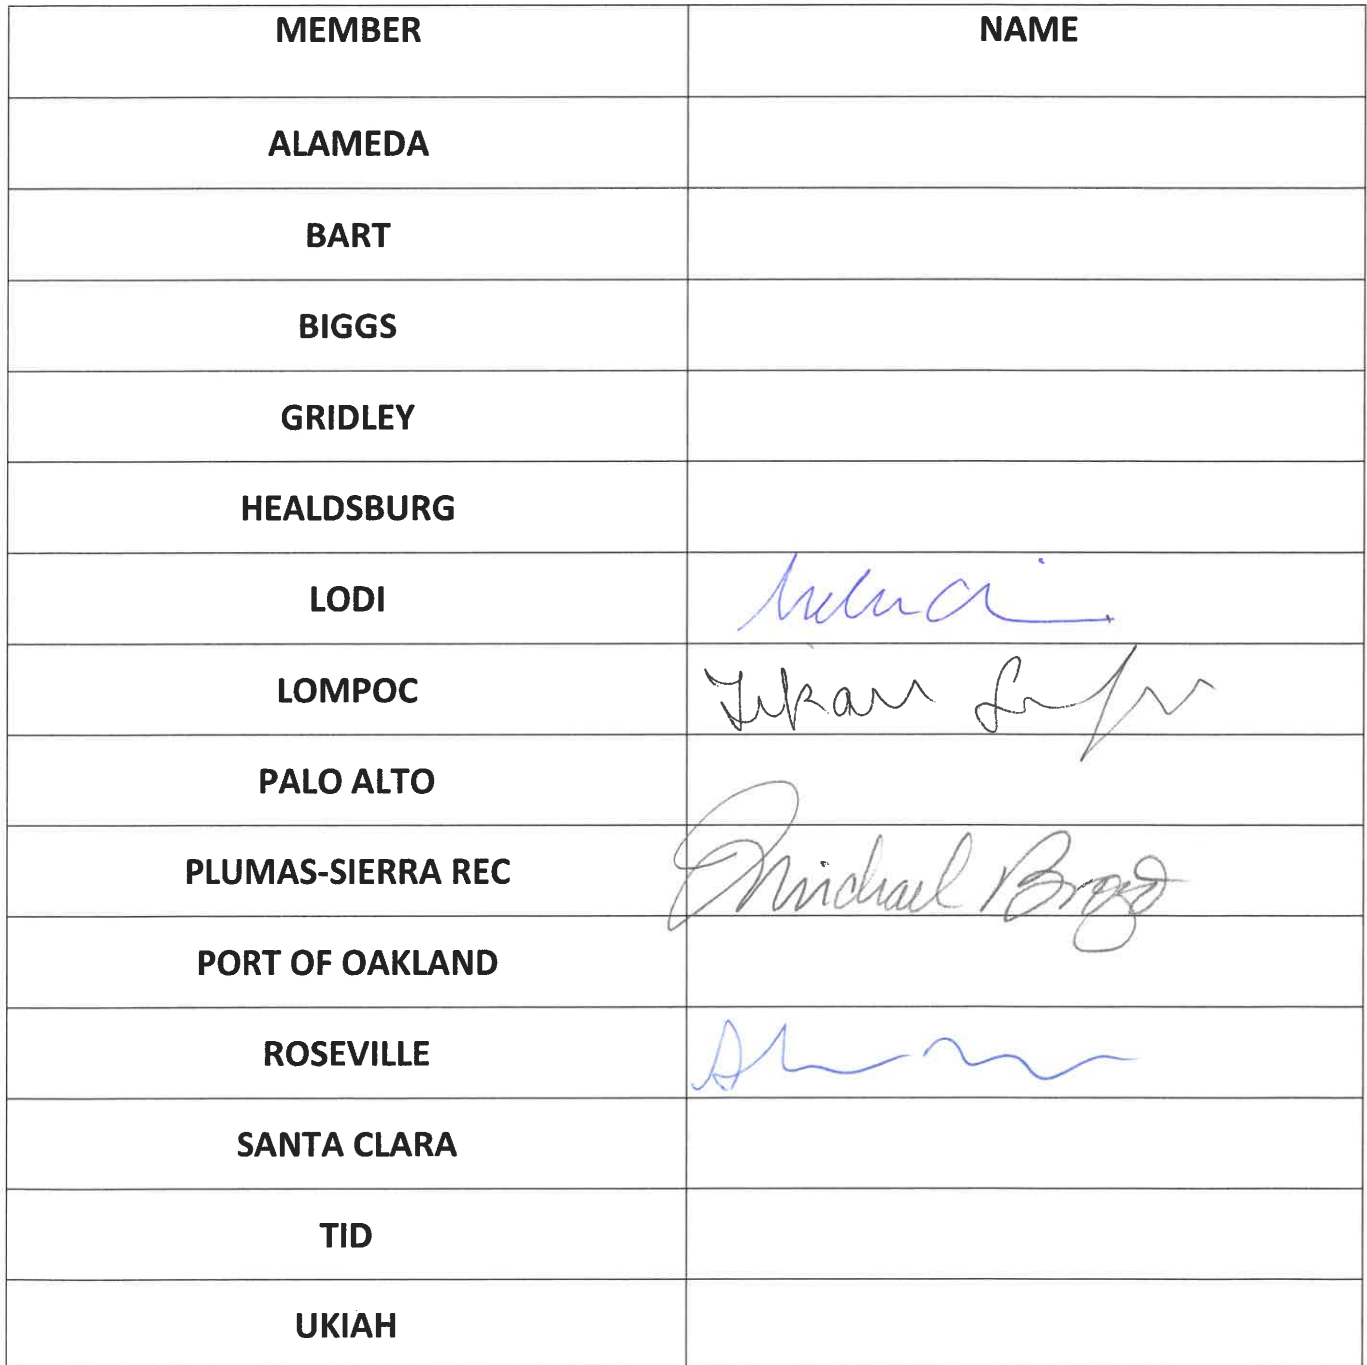 MEMBER NAME
ALAMEDA
BART
BIGGS
GRIDLEY
HEALDSBURG
LODI
LOMPOC
PALO ALTO
PLUMAS-SIERRA REC Michael
PORT OF OAKLAND
ROSEVILLE
SANTA CLARA
TID
UKIAH